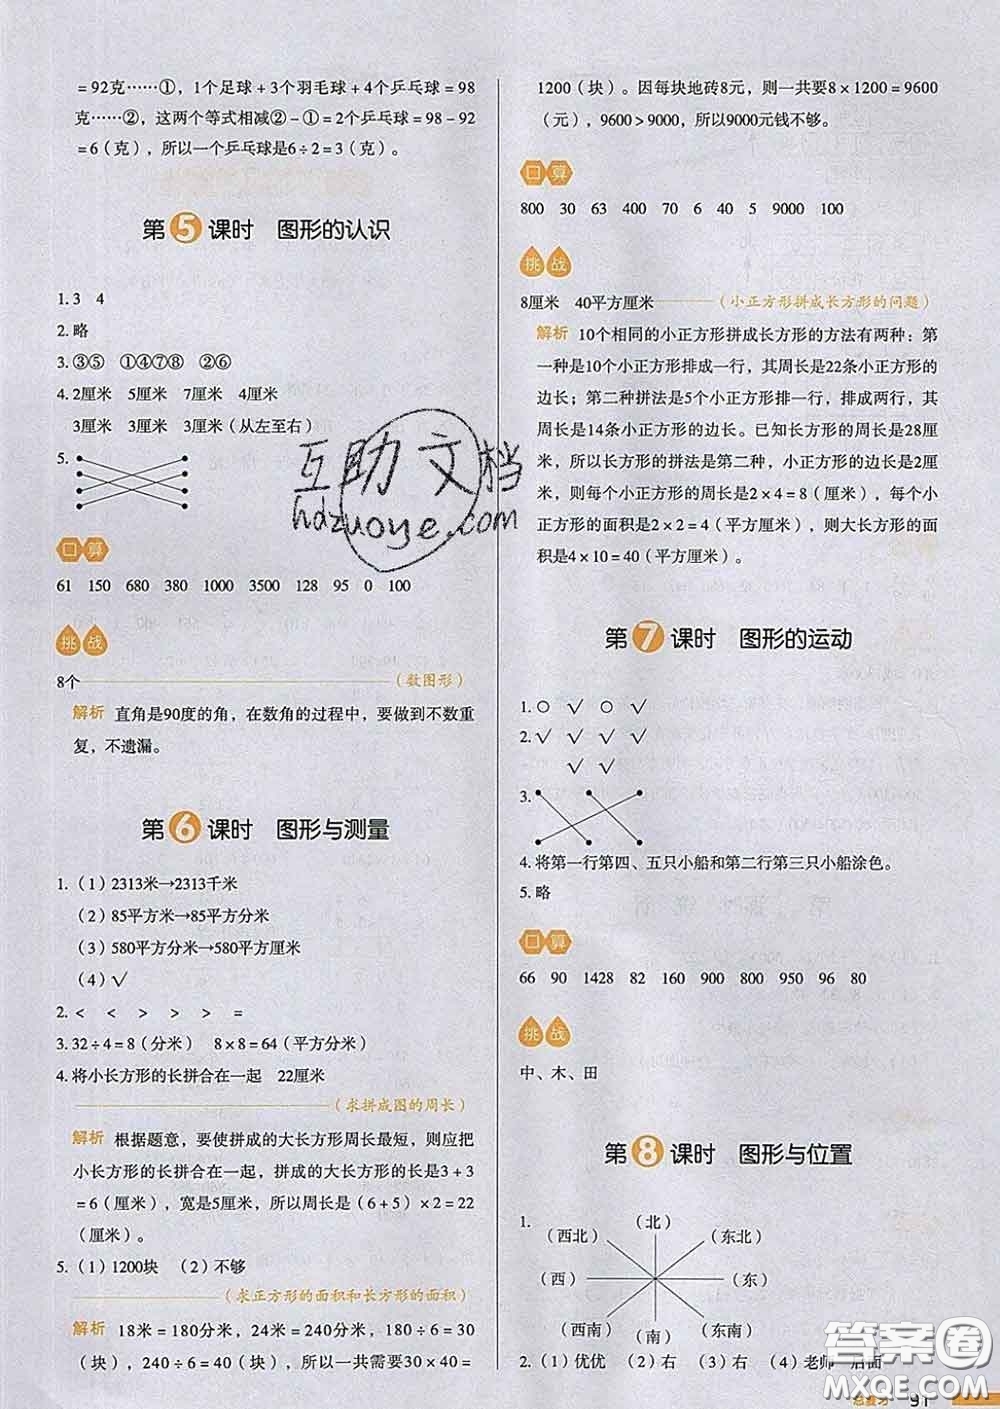 =92克……①，1个足球+3个羽毛球+4个乒乓球=98
克……②，这两个等式相减②-①=2个乒乓球=98-92
=6（克），所以一个乒乓球是6÷2=3（克）。
第5课时 图形的认识
1.3 4
2.略
3.③⑤ ①④⑦⑧ ②⑥
4.2厘米 5厘米 7厘米 4厘米
3厘米 3厘米 3厘米（从左至右）
5.
口算
61 150 680 380 1000 3500 128 95 0 100
挑战
8个（数图形）
解析 直角是90度的角，在数角的过程中，要做到不数重
复，不遗漏。
第6课时 图形与测量
1.（1）2313米→2313千米
（2）85平方米→85平方分米
（3）580平方分米→580平方厘米
（4）√
2.< < > > > =
3.32÷4=8（分米） 8×8=64（平方分米）
4.将小长方形的长拼合在一起 22厘米
（求拼成图的周长）
解析 根据题意，要使拼成的大长方形周长最短，则应把
小长方形的长拼合在一起，拼成的大长方形的长是3+3
=6（厘米），宽是5厘米，所以周长是（6+5）×2=22
（厘米）。
5.（1）1200块 （2）不够
（求正方形的面积和长方形的面积）
解析 18米=180分米，24米=240分米，180÷6=30
（块），240÷6=40（块），所以一共需要30×40=
1200（块）。因每块地砖8元，则一共要8×1200=9600
（元），9600>9000，所以9000元钱不够。
口算
800 30 63 400 70 6 40 5 9000 100
挑战
8厘米 40平方厘米（小正方形拼成长方形的问题）
解析 10个相同的小正方形拼成长方形的方法有两种：第
一种是10个小正方形排成一行，周长是22条小正方形的
边长；第二种拼法是5个小正方形排一行，排成两行，其
周长是14条小正方形的边长。已知长方形的周长是28厘
米，所以长方形的拼法是第二种，小正方形的边长是2厘
米，则每个小正方形的周长是2×4=8（厘米），每个小
正方形的面积是2×2=4（平方厘米），则大长方形的面
积是4×10=40（平方厘米）。
第7课时 图形的运动
1.○ √ ○ √
2.√ √ √ √
√ √
3.
4.将第一行第四、五只小船和第二行第三只小船涂色。
5.略
口算
66 90 1428 82 160 900 800 950 96 80
挑战
中、木、田
第8课时 图形与位置
1.
（西北） （北） （东北）
（西） （东）
（西南） （南） （东南）
2.（1）优优 （2）右 （3）右 （4）老师 后面
总复习 91
互助文档
hdzuoye.com
答案圈
MXQE.COM